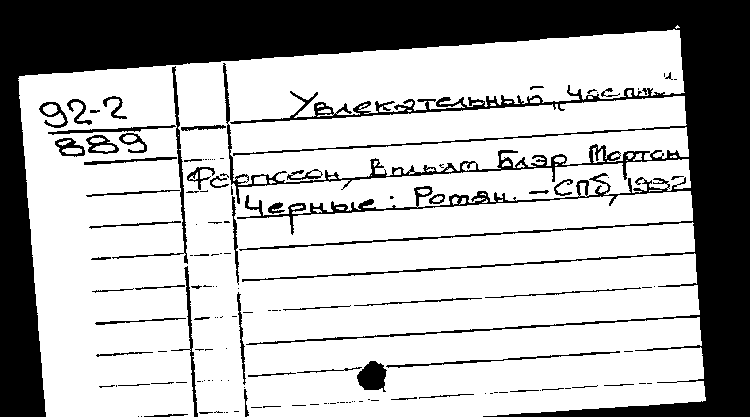 92-2
889
Увлекательный „Частик"
Фергюссон, Вильям Блэр Мортон
Черные: Роман. – СПб, 1992